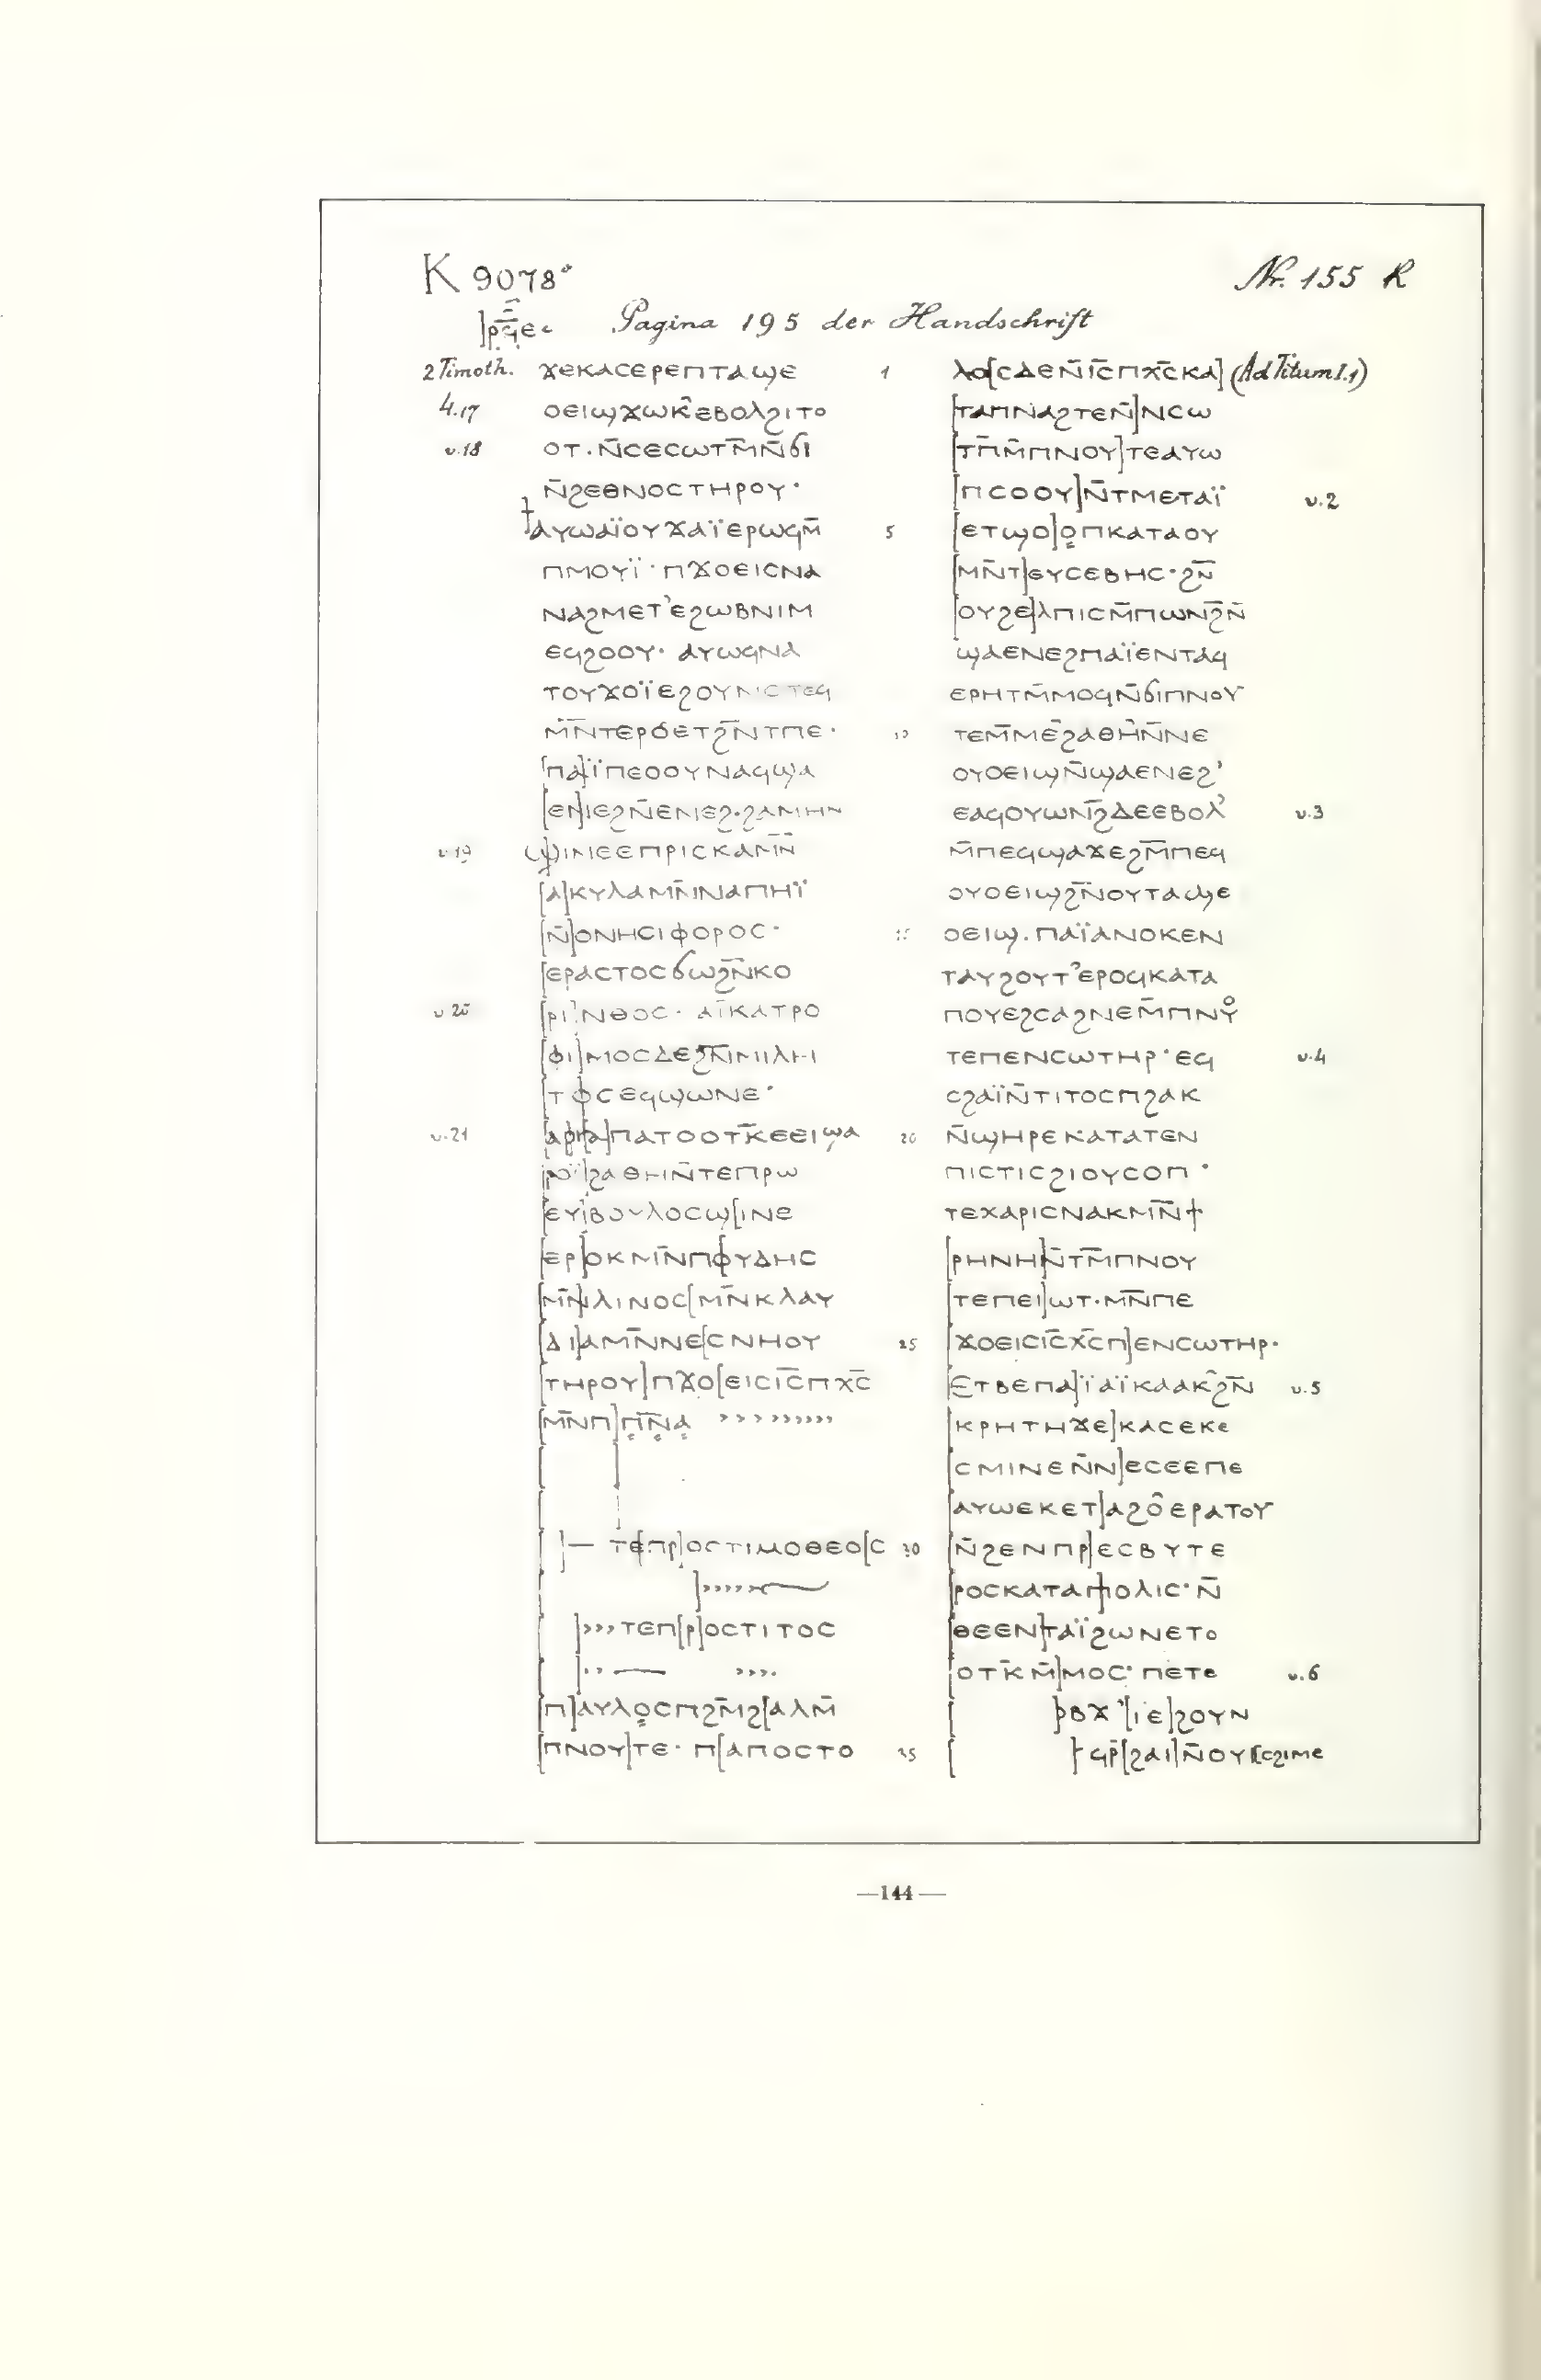 K 9078ᵃ
Nr. 155 R
]ⲣϥ̄ⲉ
Pagina 195 der Handschrift
2 Timoth. ϫⲉⲕⲁⲥⲉⲣⲉⲡⲧⲁϣⲉ
4.17 ⲟⲉⲓϣϫⲱⲕ̂ⲉⲃⲟⲗϩⲓⲧⲟ
v.18 ⲟⲧ·ⲛ̄ⲥⲉⲥⲱⲧⲙ̄ⲛ̄ϭⲓ
ⲛ̄ϩⲉⲑⲛⲟⲥⲧⲏⲣⲟⲩ·
ⲁⲩⲱⲁⲓ̈ⲟⲩϫⲁⲓ̈ⲉⲣⲱϥⲙ̄
ⲡⲙⲟⲩⲓ̈·ⲡϫⲟⲉⲓⲥⲛⲁ
ⲛⲁϩⲙⲉⲧ'ⲉϩⲱⲃⲛⲓⲙ
ⲉϥϩⲟⲟⲩ·ⲁⲩⲱϥⲛⲁ
ⲧⲟⲩϫⲟⲓ̈ⲉϩⲟⲩⲛⲉⲧⲉϥ
ⲙ̄ⲛ̄ⲧⲉⲣⲟⲉⲧϩⲛ̄ⲧⲡⲉ·
[ⲡⲁ]ⲓ̈ⲡⲉⲟⲟⲩⲛⲁϥϣⲁ
[ⲉⲛ]ⲉϩⲛ̄ⲉⲛⲉϩ·ϩⲁⲙⲏⲛ
v.19 ϣⲓⲛⲉⲉⲡⲣⲓⲥⲕⲁⲙⲛ̄
[ⲁ]ⲕⲩⲗⲁⲙⲛ̄ⲛⲁⲡⲏⲓ̈
[ⲛ̄]ⲟⲛⲏⲥⲓⲫⲟⲣⲟⲥ·
[ⲉⲣⲁⲥⲧⲟⲥϭⲱϩⲛ̄ⲕⲟ
v.20 [ⲣⲓ]ⲛⲑⲟⲥ·ⲁⲓ̈ⲕⲁⲧⲣⲟ
[ⲫⲓ]ⲙⲟⲥⲇⲉϩⲙ̄ⲙⲓⲗⲏ
[ⲧⲟⲥⲉϥϣⲱⲛⲉ·
v.21 [ⲁⲣⲓⲁ]ⲡⲁⲧⲟⲟⲧⲕ̄ⲉⲉⲓϣⲁ
ⲣⲟⲓ̈]ϩⲁⲑⲏⲛ̄ⲧⲉⲡⲣⲱ
[ⲉⲩ]ⲃⲟⲩⲗⲟⲥϣ[ⲓⲛⲉ
[ⲉⲣ]ⲟⲕⲙⲛ̄ⲡⲟⲩⲇⲏⲥ
[ⲙⲛ̄]ⲗⲓⲛⲟⲥ[ⲙⲛ̄ⲕⲗⲁⲩ
[ⲇⲓ]ⲁⲙⲛ̄ⲛⲉ[ⲥⲛⲏⲟⲩ
[ⲧⲏⲣⲟⲩ]ⲡϫⲟ[ⲉⲓⲥⲓ̅ⲥ̅ⲡⲭ̅ⲥ̅
[ⲙⲛ̄ⲡ]ⲡ̣̅ⲛ̣̅ⲁ̣ ›››››››››
]— ⲧⲉ[ⲡⲣ]ⲟⲥⲧⲓⲙⲟⲑⲉⲟ[ⲥ
]›››››
]›››ⲧⲉⲡ[ⲣ]ⲟⲥⲧⲓⲧⲟⲥ
]›› — ››››
[ⲡ]ⲁⲩⲗⲟ̣ⲥⲡϩⲙ̄ϩ[ⲁⲗⲙ̄
[ⲡⲛⲟⲩ]ⲧⲉ·ⲡ[ⲁⲡⲟⲥⲧⲟ
1 ⲗⲟ[ⲥⲇⲉⲛ̄ⲓ̅ⲥ̅ⲡⲭ̅ⲥ̅ⲕⲁ] (Ad Titum I.1)
[ⲧⲁⲡⲛⲁϩⲧⲉⲛ̄]ⲛⲥⲱ
[ⲧⲡ̄ⲙ̄ⲡⲛⲟⲩ]ⲧⲉⲁⲩⲱ
[ⲡⲥⲟⲟⲩ]ⲛ̄ⲧⲙⲉⲧⲁⲓ̈ v.2
5 [ⲉⲧϣⲟ]ⲟ̣ⲡⲕⲁⲧⲁⲟⲩ
[ⲙⲛ̄ⲧ]ⲉⲩⲥⲉⲃⲏⲥ·ϩⲛ̄
[ⲟⲩϩⲉ]ⲗⲡⲓⲥⲙ̄ⲡⲱⲛϩ̄ⲛ̄
ϣⲁⲉⲛⲉϩⲡⲁⲓ̈ⲉⲛⲧⲁϥ
ⲉⲣⲏⲧⲙ̄ⲙⲟϥⲛ̄ϭⲓⲡⲛⲟⲩ
10 ⲧⲉⲙ̄ⲙⲉϩⲁⲑⲏⲛ̄ⲛⲉ
ⲟⲩⲟⲉⲓϣⲛ̄ϣⲁⲉⲛⲉϩ'
ⲉⲁϥⲟⲩⲱⲛϩ̄ⲇⲉⲉⲃⲟⲗ' v.3
ⲙ̄ⲡⲉϥϣⲁϫⲉϩⲙ̄ⲡⲉϥ
ⲟⲩⲟⲉⲓϣϩⲛ̄ⲟⲩⲧⲁϣⲉ
15 ⲟⲉⲓϣ·ⲡⲁⲓ̈ⲁⲛⲟⲕⲉⲛ
ⲧⲁⲩϩⲟⲩⲧ'ⲉⲣⲟϥⲕⲁⲧⲁ
ⲡⲟⲩⲉϩⲥⲁϩⲛⲉⲙ̄ⲡⲛⲟⲩ
ⲧⲉⲡⲉⲛⲥⲱⲧⲏⲣ·ⲉϥ v.4
ⲥϩⲁⲓ̈ⲛ̄ⲧⲓⲧⲟⲥⲡϩⲁⲕ
20 ⲛ̄ϣⲏⲣⲉⲕⲁⲧⲁⲧⲉⲛ
ⲡⲓⲥⲧⲓⲥϩⲓⲟⲩⲥⲟⲡ·
ⲧⲉⲭⲁⲣⲓⲥⲛⲁⲕⲙⲛ̄ϯ
[ⲣⲏⲛⲏ]ⲛ̄ⲧⲙ̄ⲡⲛⲟⲩ
[ⲧⲉⲡⲉⲓ]ⲱⲧ·ⲙⲛ̄ⲡⲉ
25 [ϫⲟⲉⲓⲥⲓ̅ⲥ̅ⲭ̅ⲥ̅ⲡ]ⲉⲛⲥⲱⲧⲏⲣ·
[ⲉⲧⲃⲉⲡⲁ]ⲓ̈ⲁⲓ̈ⲕⲁⲁⲕ̂ϩⲛ̄ v.5
[ⲕⲣⲏⲧⲏϫⲉ]ⲕⲁⲥⲉⲕⲉ
[ⲥⲙⲓⲛⲉⲛ̄ⲛ]ⲉⲥⲉⲉⲡⲉ
[ⲁⲩⲱⲉⲕⲉⲧ]ⲁϩⲟ̂ⲉⲣⲁⲧⲟⲩ
30 [ⲛ̄ϩⲉⲛⲡⲣ]ⲉⲥⲃⲩⲧⲉ
[ⲣⲟⲥⲕⲁⲧⲁⲡ]ⲟⲗⲓⲥ·ⲛ̄
[ⲑⲉⲉⲛ]ⲧⲁⲓ̈ϩⲱⲛⲉⲧⲟ
[ⲟⲧⲕ̄ⲙ̄]ⲙⲟⲥ·ⲡⲉⲧⲉ v.6
]ⲃϫ'[ⲓⲉ]ϩⲟⲩⲛ
35 ]ϥⲣ̄[ϩⲁⲓ]ⲛ̄ⲟⲩ[ⲥϩⲓⲙⲉ
—144—